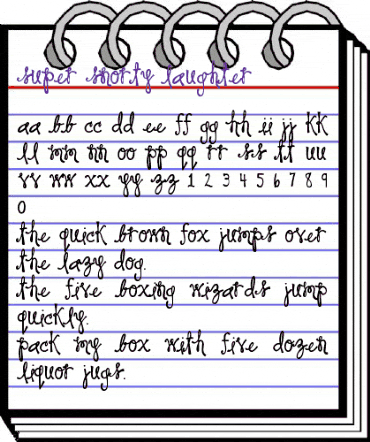 super snorty laughter
aa bb cc dd ee ff gg hh ii jj kk
ll mm nn oo pp qq rr ss tt uu
vv ww xx yy zz 1 2 3 4 5 6 7 8 9
0
the quick brown fox jumps over
the lazy dog.
the five boxing wizards jump
quickly.
pack my box with five dozen
liquor jugs.